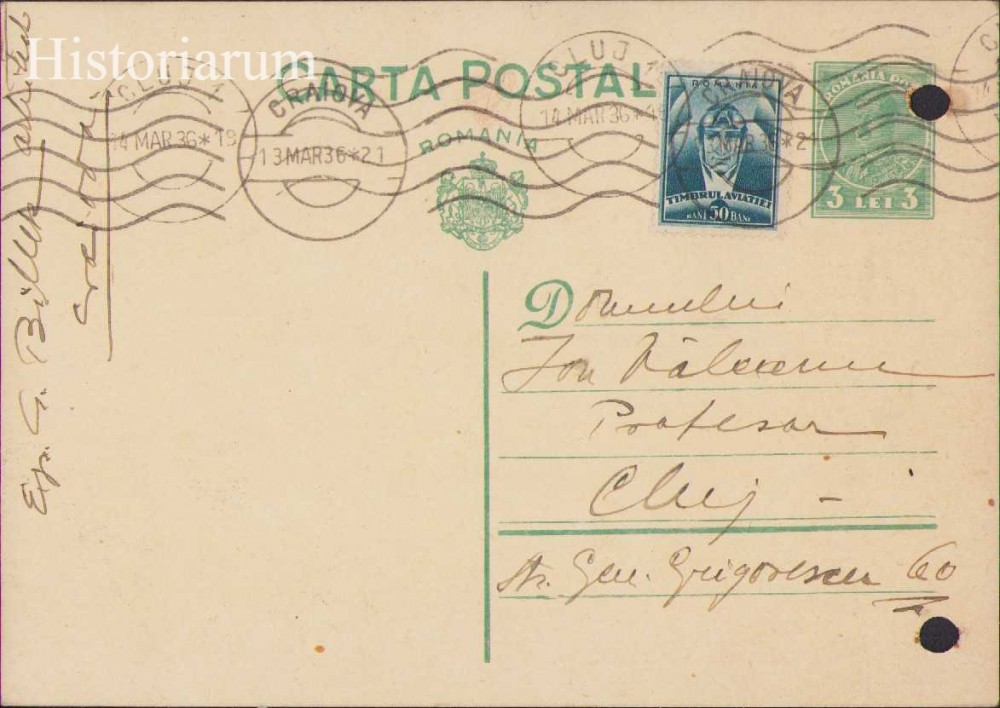 Historiarum
CARTA POSTALA
ROMANIA
CLUJ 1
14 MAR 36*19
CRAIOVA
13 MAR 36*21
CLUJ 1
14 MAR 36*19
CRAIOVA
13 MAR 36*2
ROMANIA
TIMBRUL AVIATIEI
BANI 50 BANI
ROMANIA
3 LEI 3
Domnului
Ion
Profesor
Cluj -
Str. Gen. Grigorescu 60
Exp. G.
Craiova